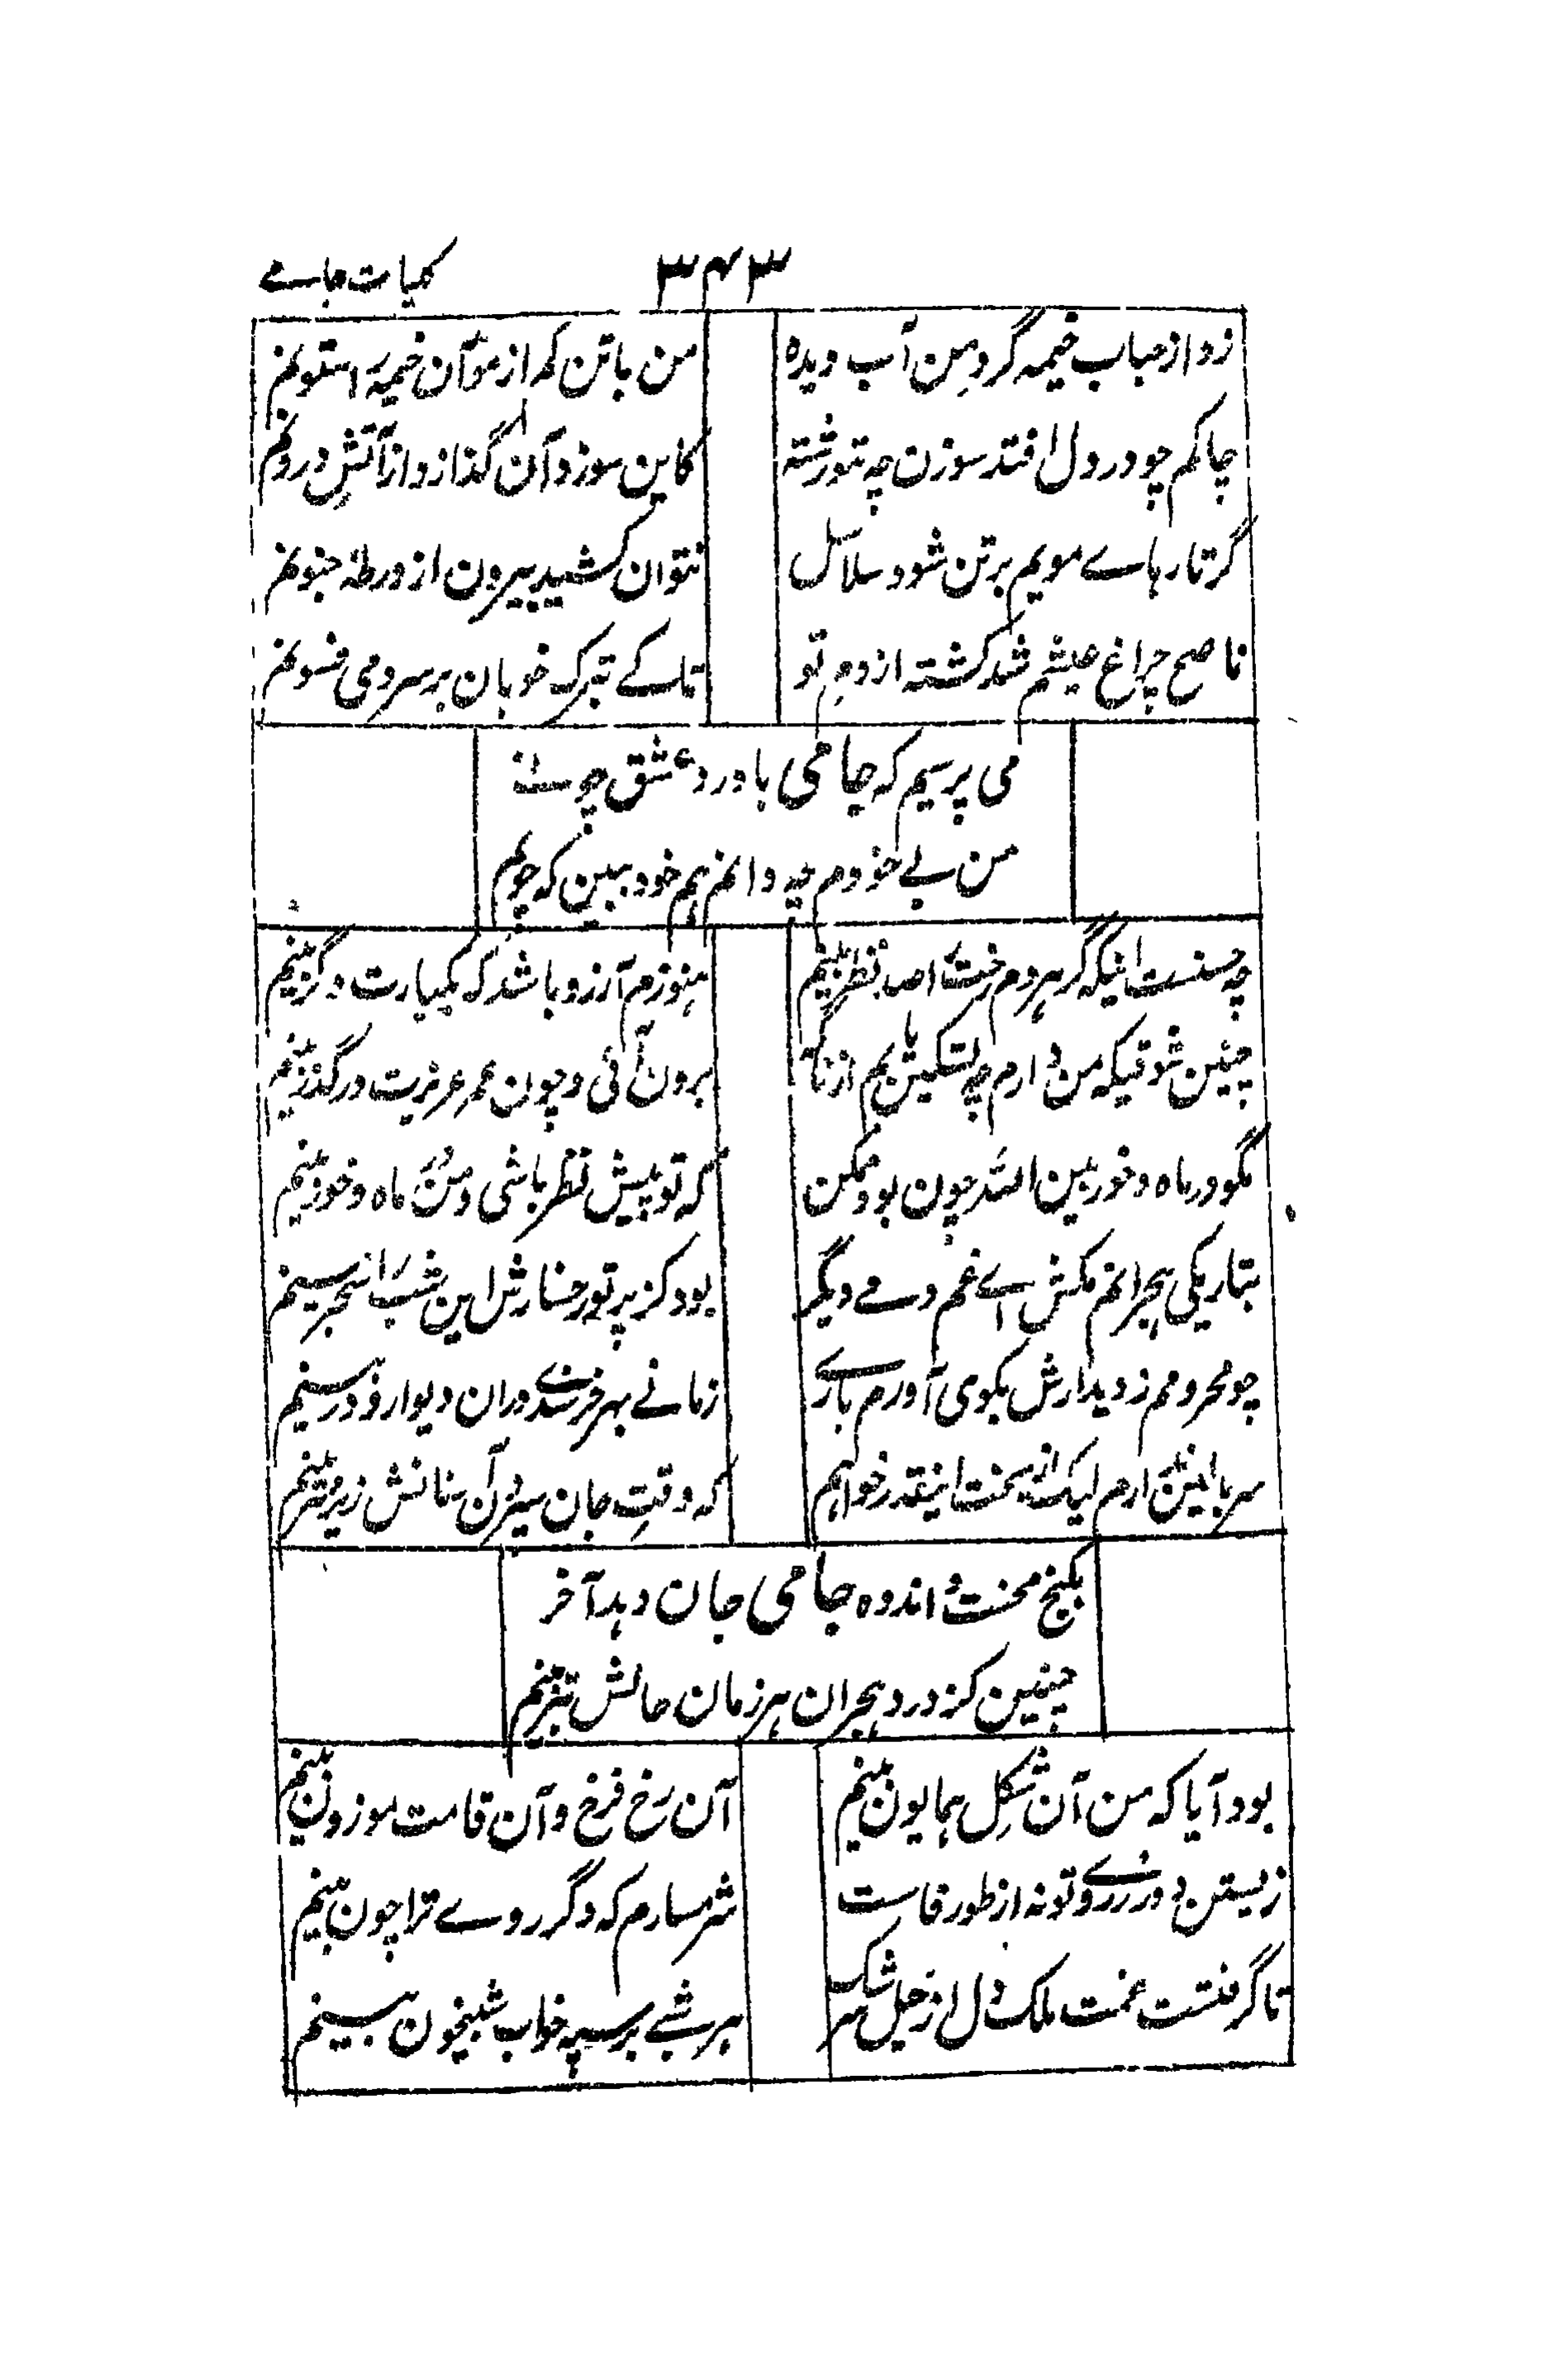 کلیات جامے
۳۴۳
زد از حباب خیمہ گرد من آب دیدہ
من باتن کم از مو آن خیمہ را ستونم
چاکم چو در دل افتد سوزن چہ سود رشتہ
کاین سوزد و آن گدازد از آتش درونم
گر تارہاے مویم بر تن شود سلاسل
نتوان کشید بیرون از ورطۂ جنونم
ناصح چراغ عیشم شد کشتہ از دم تو
تا کے بترک خوبان بر سر دمی فسونم
می پرسیم کہ جامی با درد عشق چونے
من بے خودم چہ دانم ہم خود ببین کہ چونم
چہ حسنست اینکہ گر ہر دم رخت را صد نظر بینم
ہنوزم آرزو باشد کہ یکبارت دگر بینم
چنین شوقیکہ من دارم چہ تسکین یابم از
برون آئی و چون عمر عزیزت در گذر بینم
مگو در ماہ و خور بین اللہ چون بود ممکن
کہ تو پیش نظر باشی و من در ماہ و خور بینم
بتاریکی ہجرانم مکش اے غم دمے دیگر
بود کز پرتو رخسارش این شب را سحر بینم
چو محرومم ز دیدارش بکوی آورم بارے
زمانے بہر خرسندے دران دیوار و در بینم
سر بالین ندارم لیک از بختت اینقدر خواہم
کہ وقت جان سپردن آن سنانش زیر سر بینم
بکنج محنت و اندوہ جامی جان دہد آخر
چنین کز درد ہجران ہر زمان حالش بتر بینم
بود آیا کہ من آن شکل ہمایون بینم
آن رخ فرخ و آن قامت موزون بینم
زیستن دور ز روے تو نہ از طور وفاست
شرمسارم کہ دگر روے ترا چون بینم
تا گرفتست غمت ملک دل از خیل سرشک
ہر شبے بر سپہ خواب شبیخون بینم